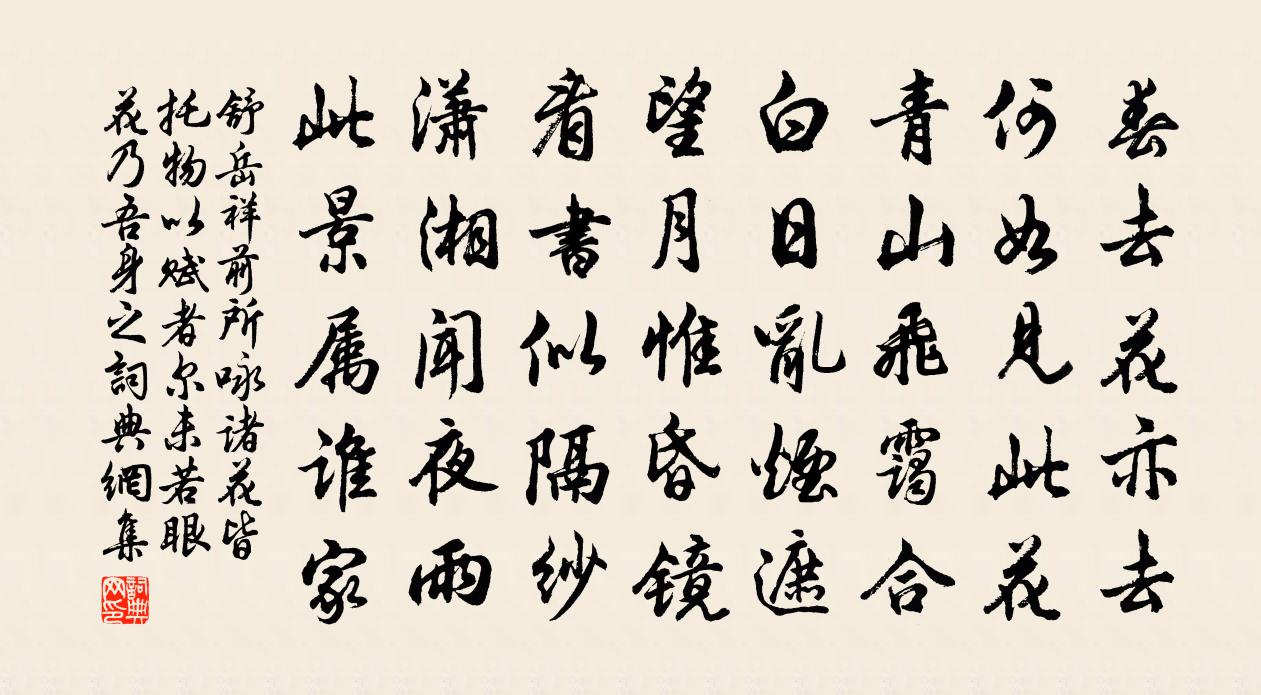 春去花亦去
何如見此花
青山飛靄合
白日亂煙遮
望月惟昏镜
看書似隔紗
瀟湘聞夜雨
此景属誰家
舒岳祥前所咏诸花皆
托物以赋者尔未若眼
花乃吾身之詞典網集
詞典
网印